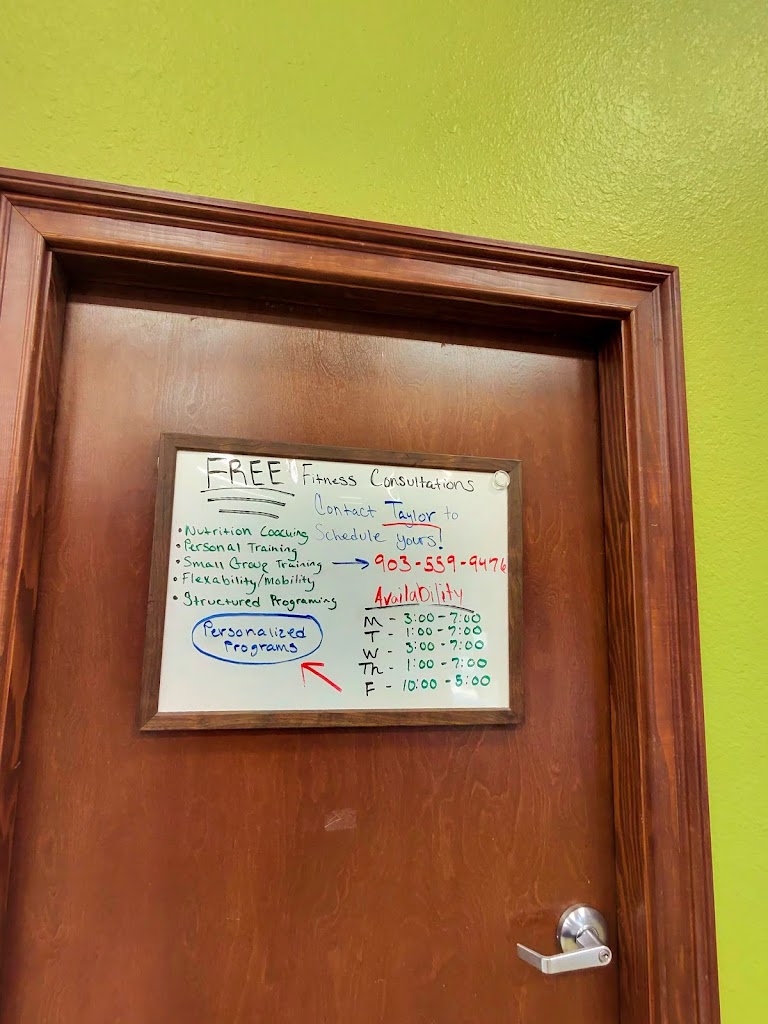 FREE Fitness Consultations
Contact Taylor to
Schedule yours!
903-559-9476
• Nutrition Coaching
• Personal Training
• Small Group Training
• Flexability/Mobility
• Structured Programing
Personalized
Programs
Availability
M - 3:00 - 7:00
T - 1:00 - 7:00
W - 3:00 - 7:00
Th - 1:00 - 7:00
F - 10:00 - 5:00